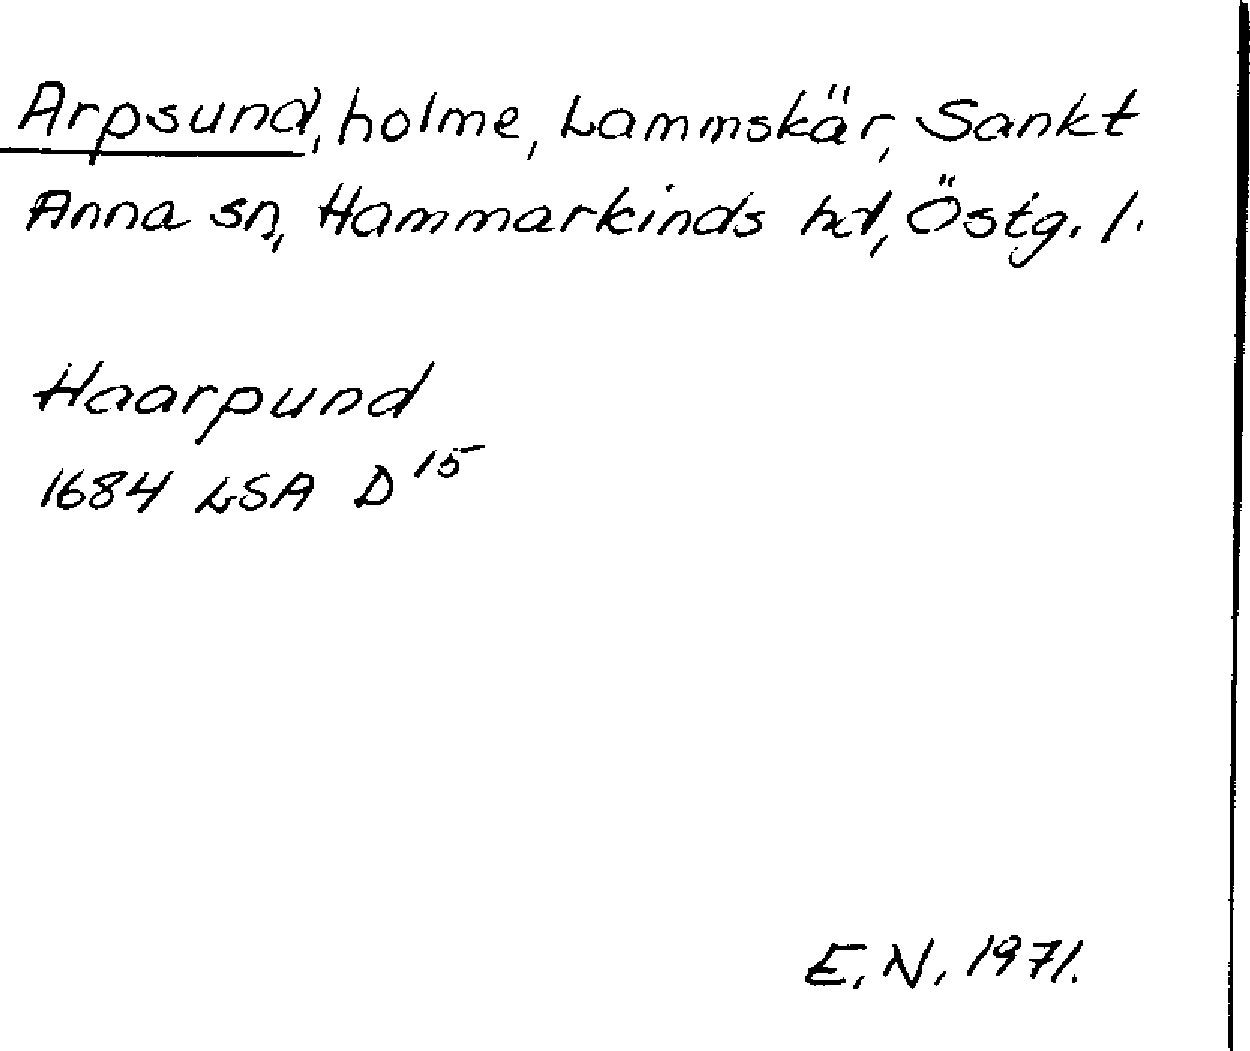 Arpsund, holme, Lammskär, Sankt
Anna sn, Hammarkinds hd, Östg. l.
Haarpund
1684 LSA D 15
E. N. 1971.